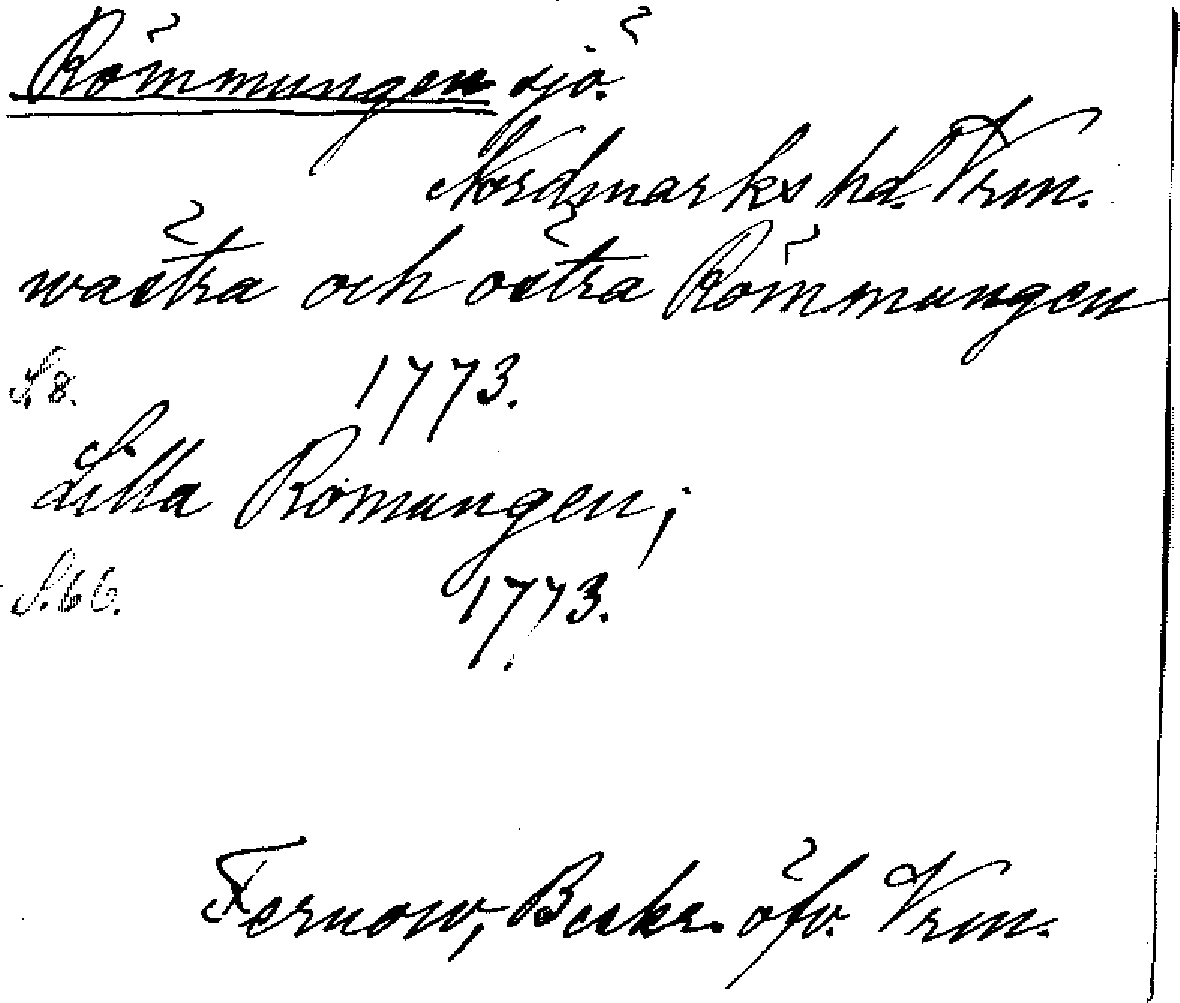 Römmungen sjö.
Nordmarks hd. Vrm.
wästra och östra Römmungen
S. 8. 1773.
Lilla Romungen;
S. 66. 1773.
Fernow, Beskr. öfv. Vrm.